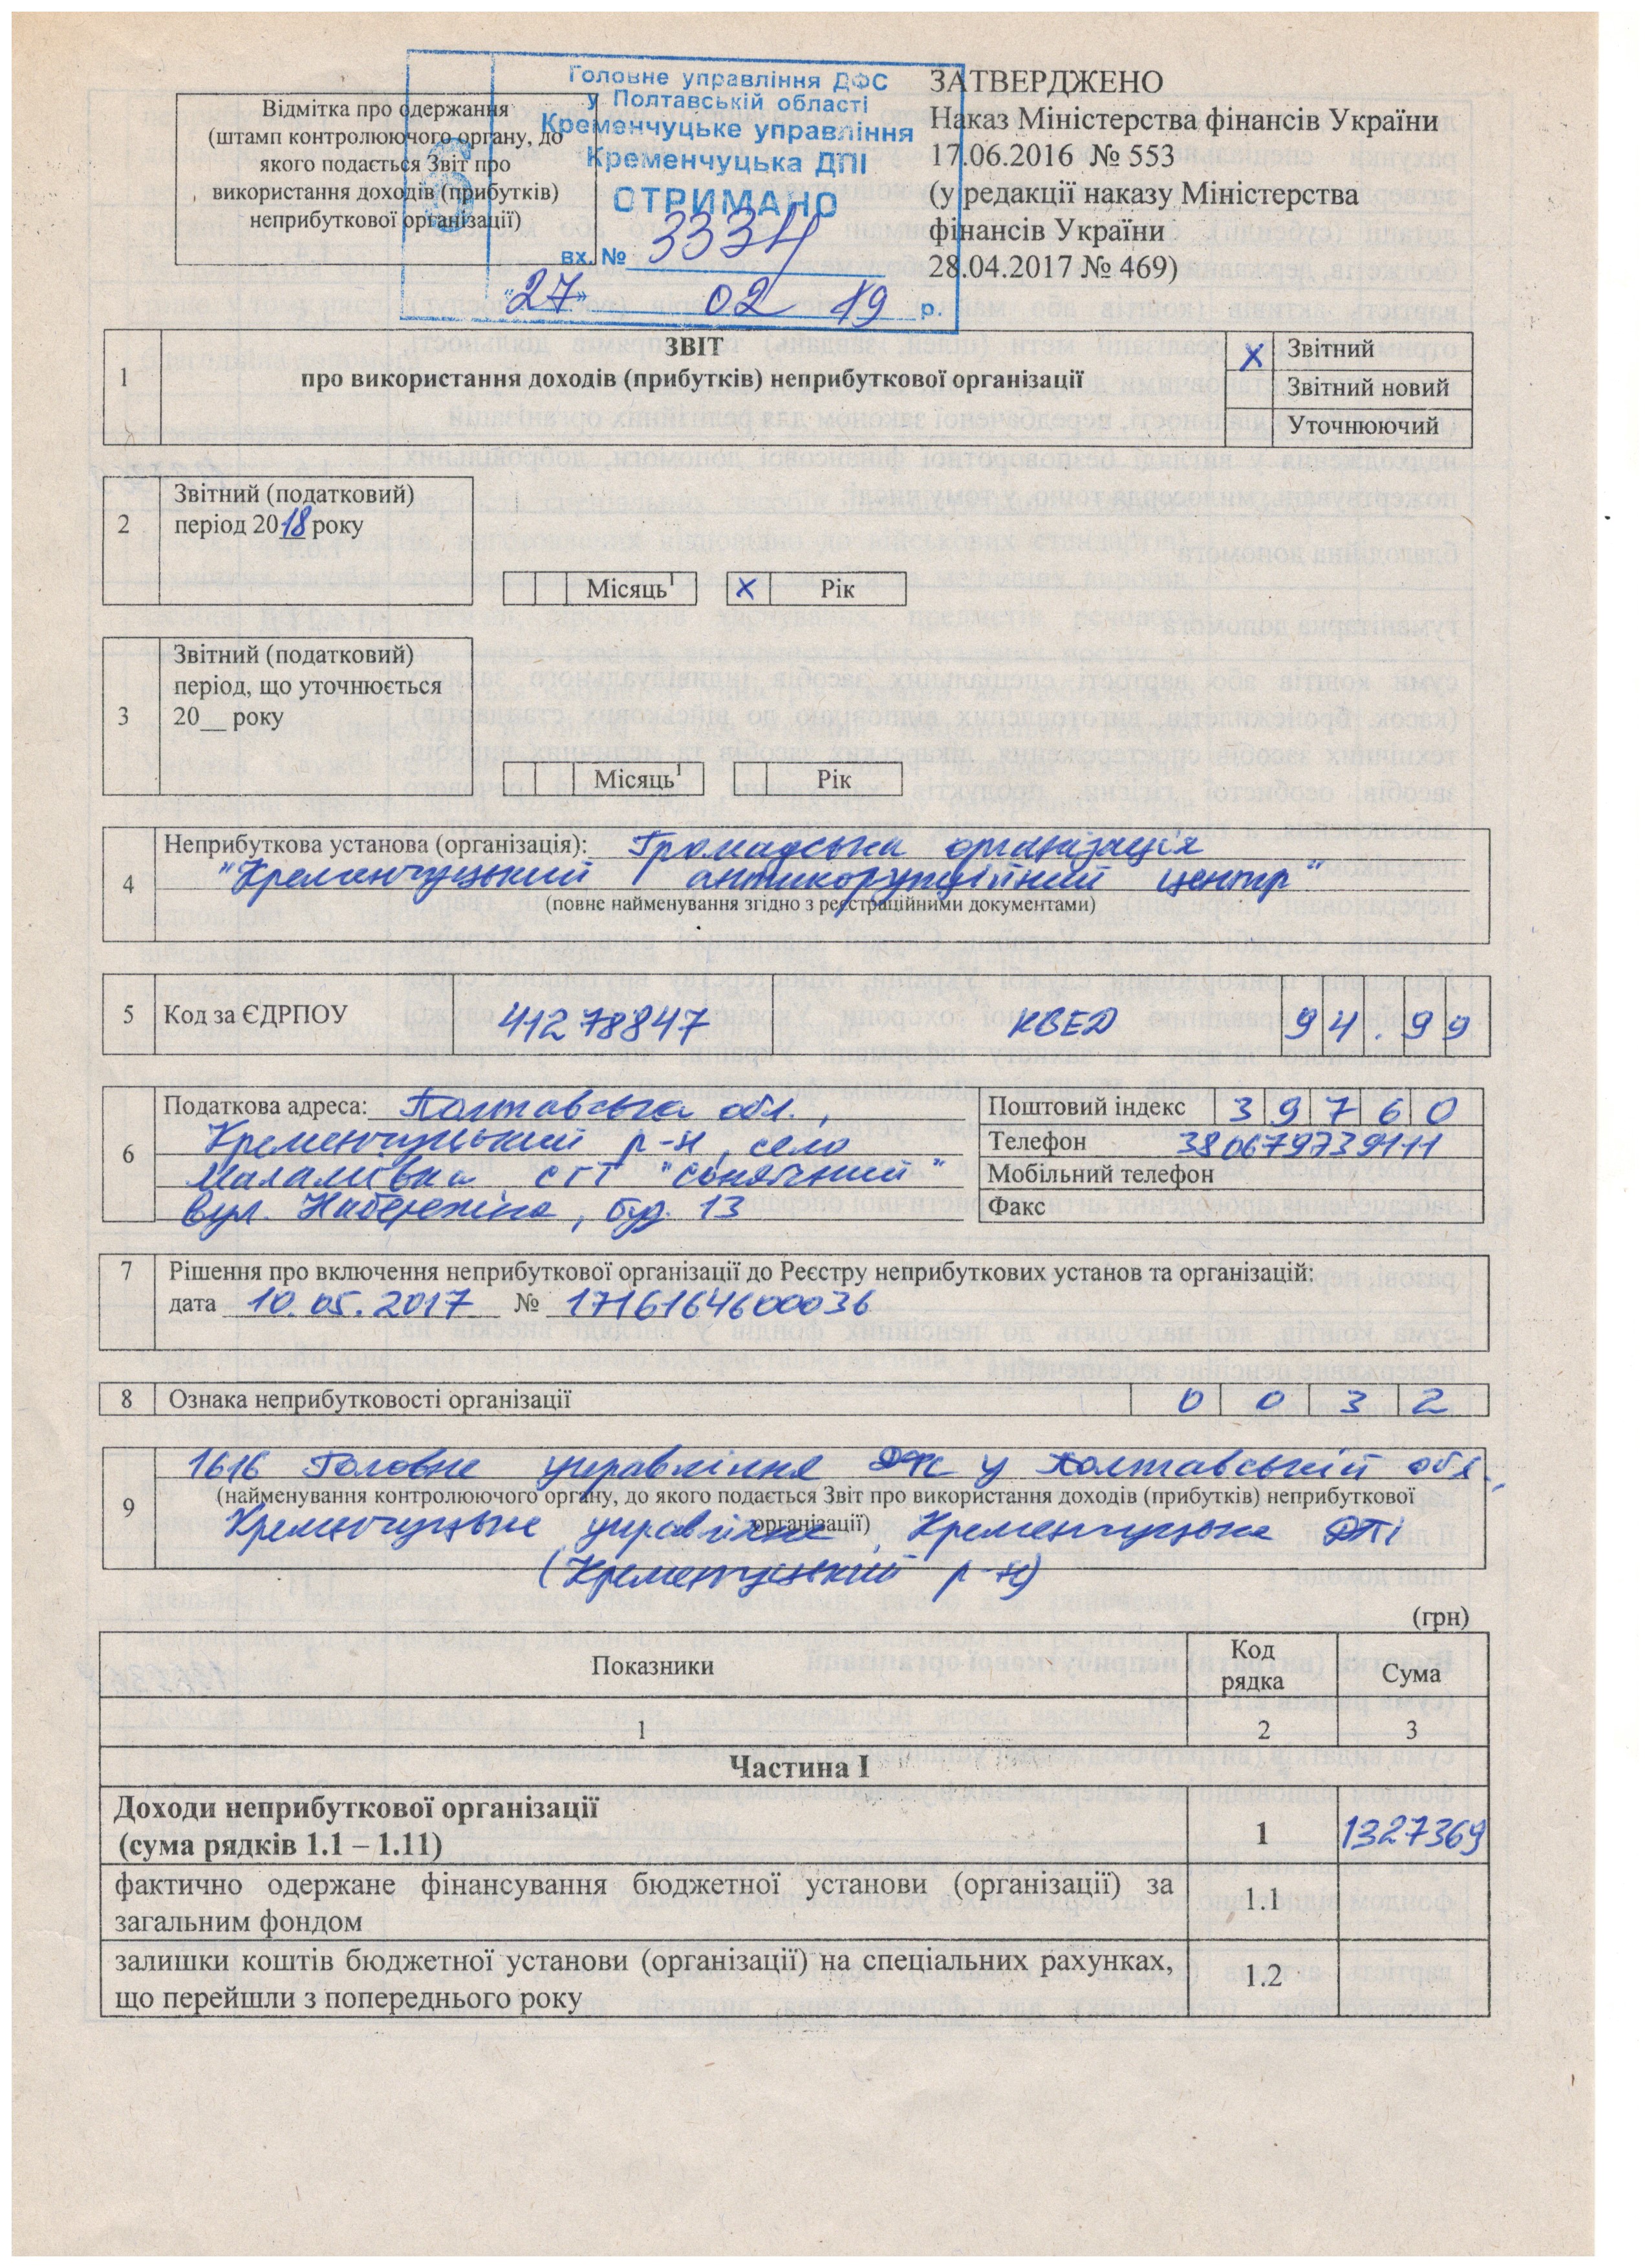 Головне управління ДФС
у Полтавській області
Кременчуцьке управління
Кременчуцька ДПІ
ОТРИМАНО
вх. №
"27" 02 19 р.
Відмітка про одержання
(штамп контролюючого органу, до
якого подається Звіт про
використання доходів (прибутків)
неприбуткової організації)
ЗАТВЕРДЖЕНО
Наказ Міністерства фінансів України
17.06.2016 № 553
(у редакції наказу Міністерства
фінансів України
28.04.2017 № 469)
1
ЗВІТ
про використання доходів (прибутків) неприбуткової організації
X Звітний
Звітний новий
Уточнюючий
2
Звітний (податковий)
період 2018 року
Місяць¹
X Рік
3
Звітний (податковий)
період, що уточнюється
20__ року
Місяць¹
Рік
4
Неприбуткова установа (організація): Громадська організація
"Кременчуцький антикорупційний центр"
(повне найменування згідно з реєстраційними документами)
5 Код за ЄДРПОУ 41278847 КВЕД 94.99
6
Податкова адреса: Полтавська обл.,
Кременчуцький р-н, село
Маламівка СГТ "Сонячний"
вул. Набережна, буд. 13
Поштовий індекс 39760
Телефон 380679739111
Мобільний телефон
Факс
7 Рішення про включення неприбуткової організації до Реєстру неприбуткових установ та організацій:
дата 10.05.2017 № 1716164600036
8 Ознака неприбутковості організації 0032
9
1616 Головне управління ДФС у Полтавській обл.,
(найменування контролюючого органу, до якого подається Звіт про використання доходів (прибутків) неприбуткової
організації)
Кременчуцьке управління, Кременчуцька ДПІ
(Кременчуцький р-н)
(грн)
Показники Код рядка Сума
1 2 3
Частина І
Доходи неприбуткової організації
(сума рядків 1.1 – 1.11) 1 1327369
фактично одержане фінансування бюджетної установи (організації) за
загальним фондом 1.1
залишки коштів бюджетної установи (організації) на спеціальних рахунках,
що перейшли з попереднього року 1.2